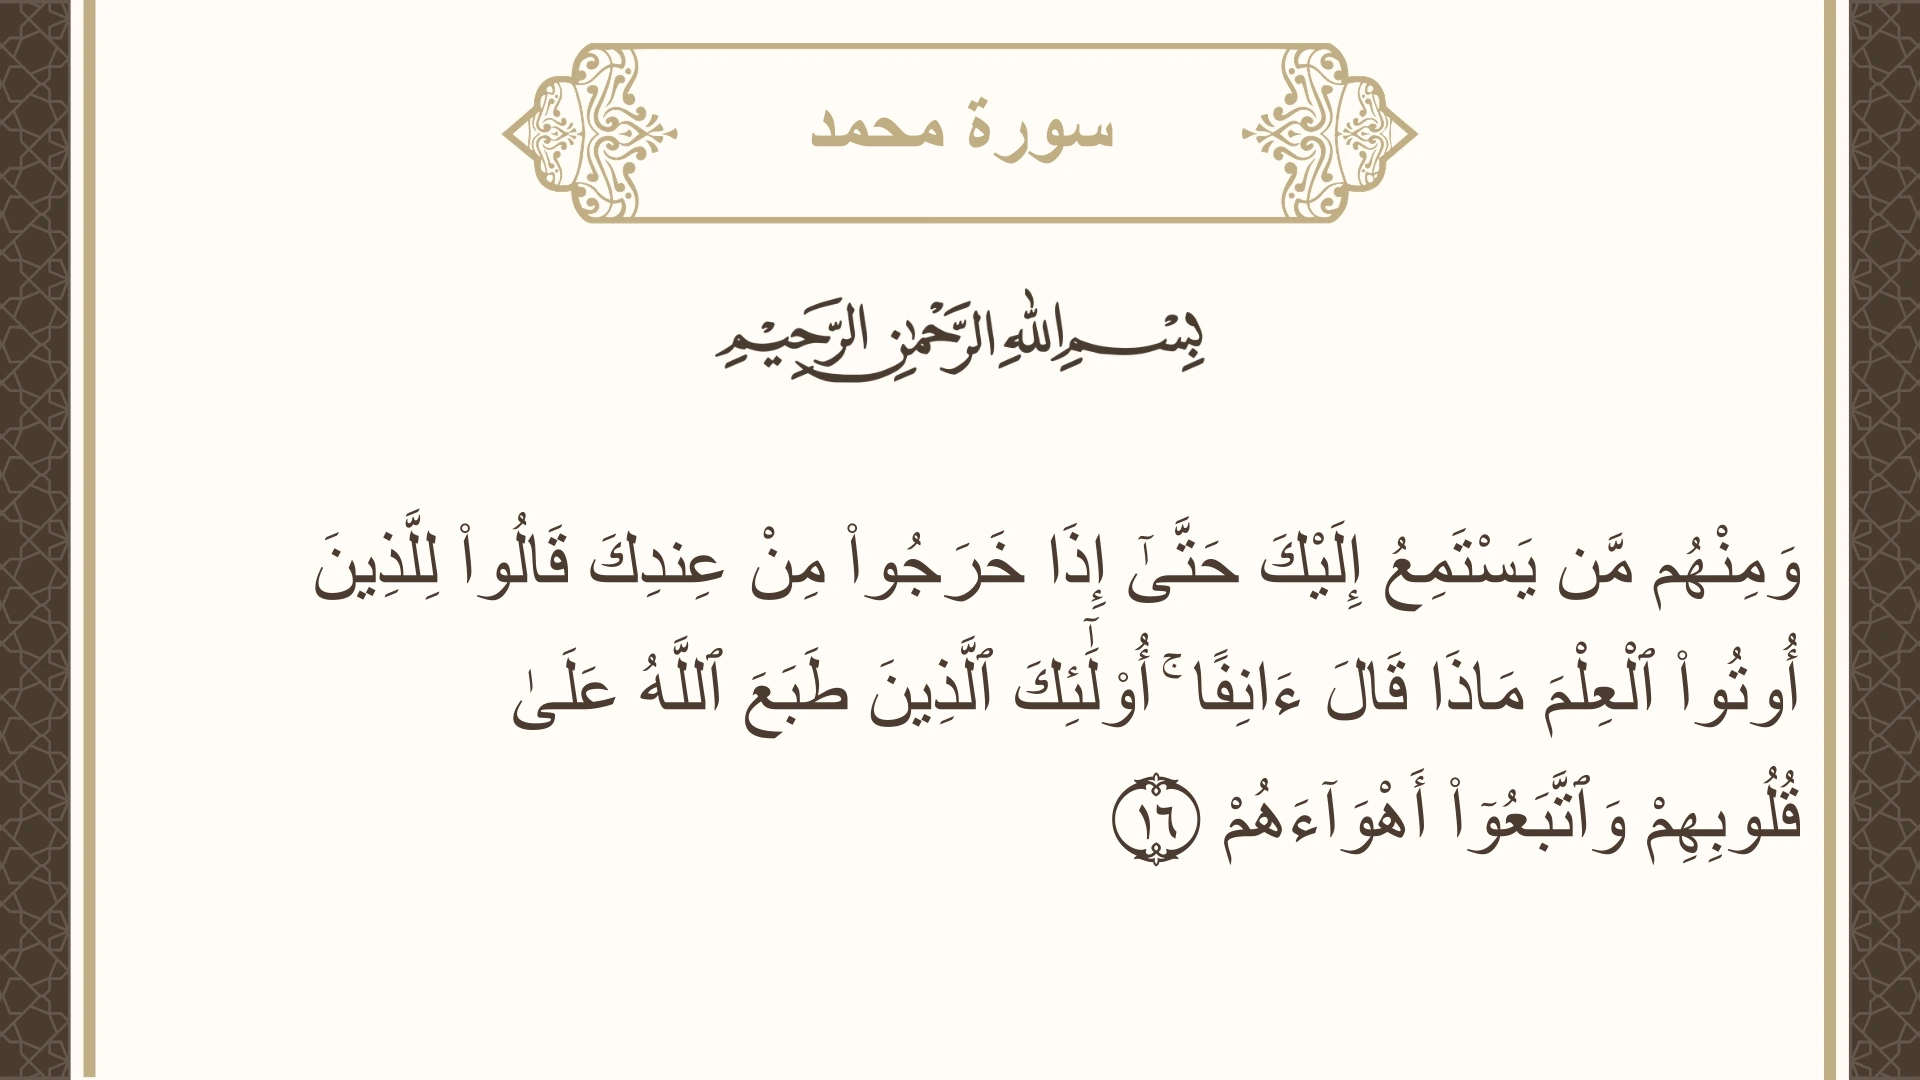 سورة محمد
بِسْمِ اللهِ الرَّحْمٰنِ الرَّحِيْمِ
وَمِنْهُم مَّن يَسْتَمِعُ إِلَيْكَ حَتَّىٰٓ إِذَا خَرَجُوا۟ مِنْ عِندِكَ قَالُوا۟ لِلَّذِينَ
أُوتُوا۟ ٱلْعِلْمَ مَاذَا قَالَ ءَانِفًا ۚ أُو۟لَٰٓئِكَ ٱلَّذِينَ طَبَعَ ٱللَّهُ عَلَىٰ
قُلُوبِهِمْ وَٱتَّبَعُوٓا۟ أَهْوَآءَهُمْ ١٦